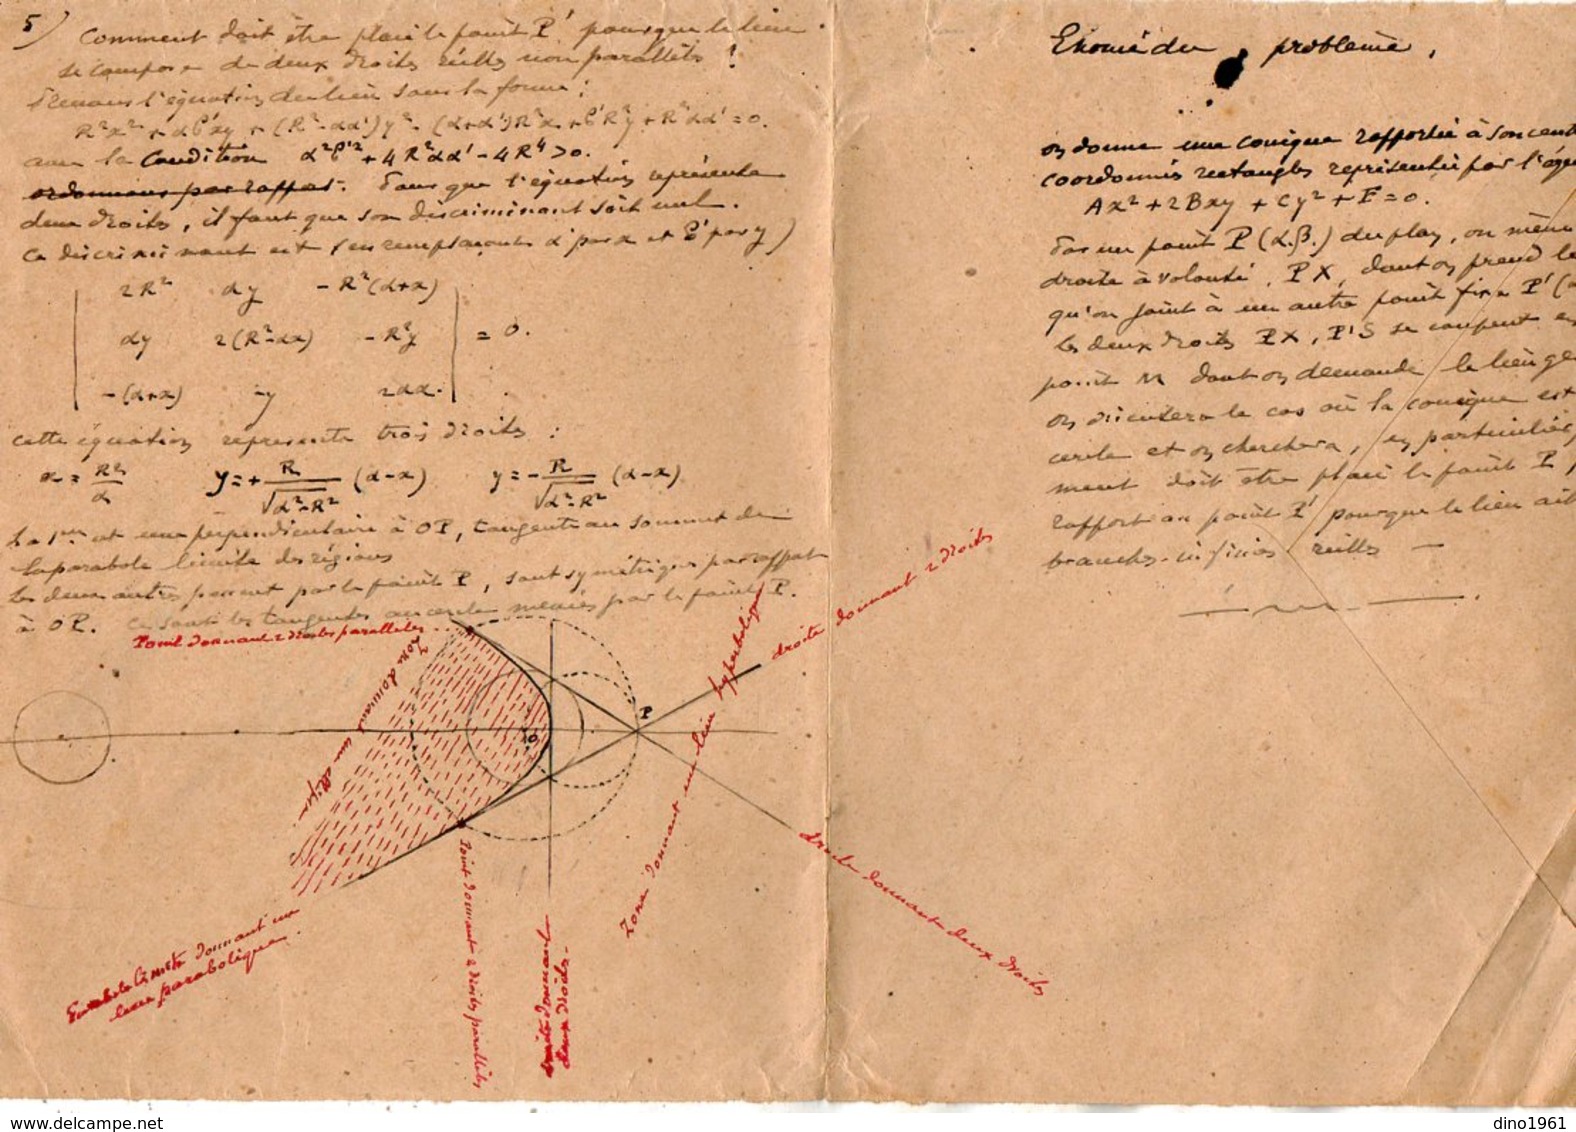 5) Comment doit être placé le point P' pour que le lieu
se compose de deux droites réelles non parallèles ?
Prenons l'équation du lieu sous la forme :
R²x² + αβ'xy + (R²-αα')y² - (α+α')R²x + β'R²y + R²αα' = 0.
avec la condition α²β'² + 4R²αα' - 4R⁴ > 0.
ordonnons par rapport. Pour que l'équation représente
deux droites, il faut que son discriminant soit nul.
Ce discriminant est (en remplaçant α' par x et β' par y)
2R² αy -R²(α+x)
αy 2(R²-αx) -R²y = 0.
-(α+x) -y 2αx.
cette équation représente trois droites :
x = R²/α y = + R/√(α²-R²) (α-x) y = - R/√(α²-R²) (α-x)
La 1ère est une perpendiculaire à OP, tangente au sommet de
la parabole limite des régions
les deux autres passent par le point P, sont symétriques par rapport
à OP. Ce sont les tangentes au cercle menées par le point P.
Point donnant 2 droites parallèles
Zone donnant un lieu hyperbolique
droite donnant 2 droites
Zone donnant une ellipse
P
O
droite donnant deux droites
Point donnant 2 droites parallèles
droite donnant
deux droites
Parabole limite donnant un
lieu parabolique.
Enoncé du problème.
on donne une conique rapportée à son cent
coordonnées rectangles représentée par l'équ
Ax² + 2Bxy + Cy² + F = 0.
Par un point P (α.β.) du plan, on mène
droite à volonté, PX, dont on prend le
qu'on joint à un autre point fixe P' (α
les deux droites PX, P'S se coupent en
point M dont on demande le lieu gé
on discutera le cas où la conique est
cercle et on cherchera, en particulier,
ment doit être placé le point P,
rapport au point P' pour que le lieu ait
branches infinies réelles —
delcampe.net
dino1961